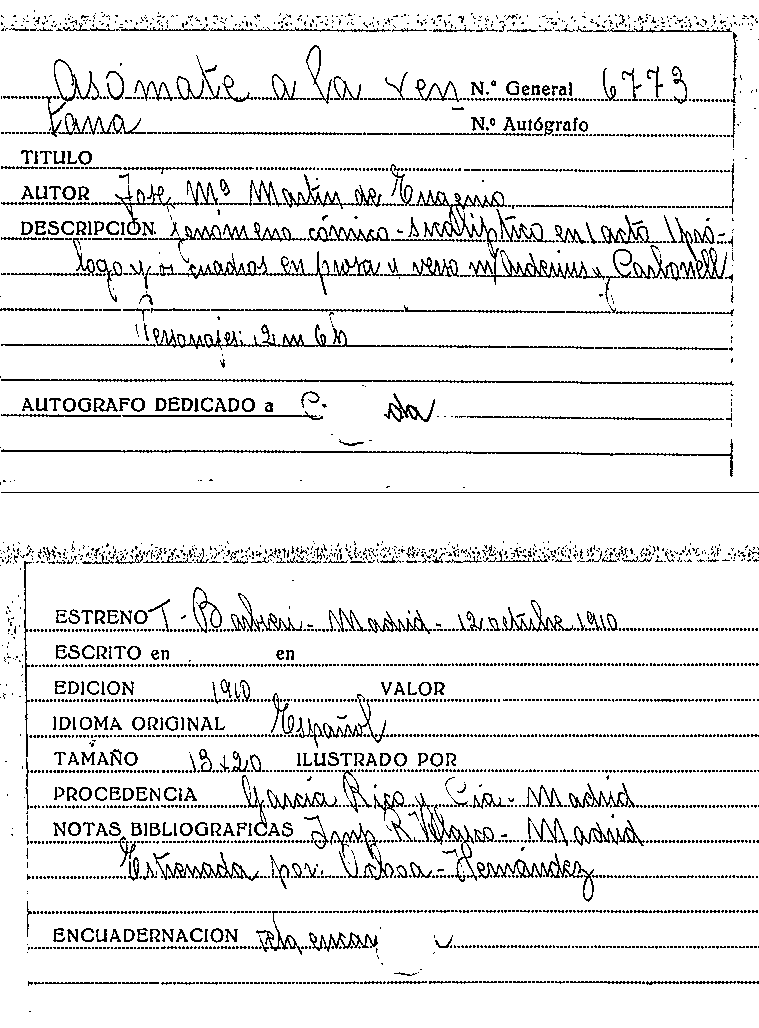 Asómate a la ven N.º General 6773
tana N.º Autógrafo
TITULO
AUTOR José Mª Martín de Eugenio
DESCRIPCIÓN fenómeno cómico-sicalíptico en 1 acto 1 pró-
logo y cuadros en prosa y verso m/ Arderius y Carbonell
Personajes: 12 m 6 h
AUTOGRAFO DEDICADO a
ESTRENO T. Barbieri - Madrid - 12 octubre 1910
ESCRITO en en
EDICION 1910 VALOR
IDIOMA ORIGINAL Español
TAMAÑO 13x20 ILUSTRADO POR
PROCEDENCIA García Rico y Cía - Madrid
NOTAS BIBLIOGRAFICAS Imp R Velasco - Madrid
Estrenada por: Ochoa - Hernández
ENCUADERNACION tela